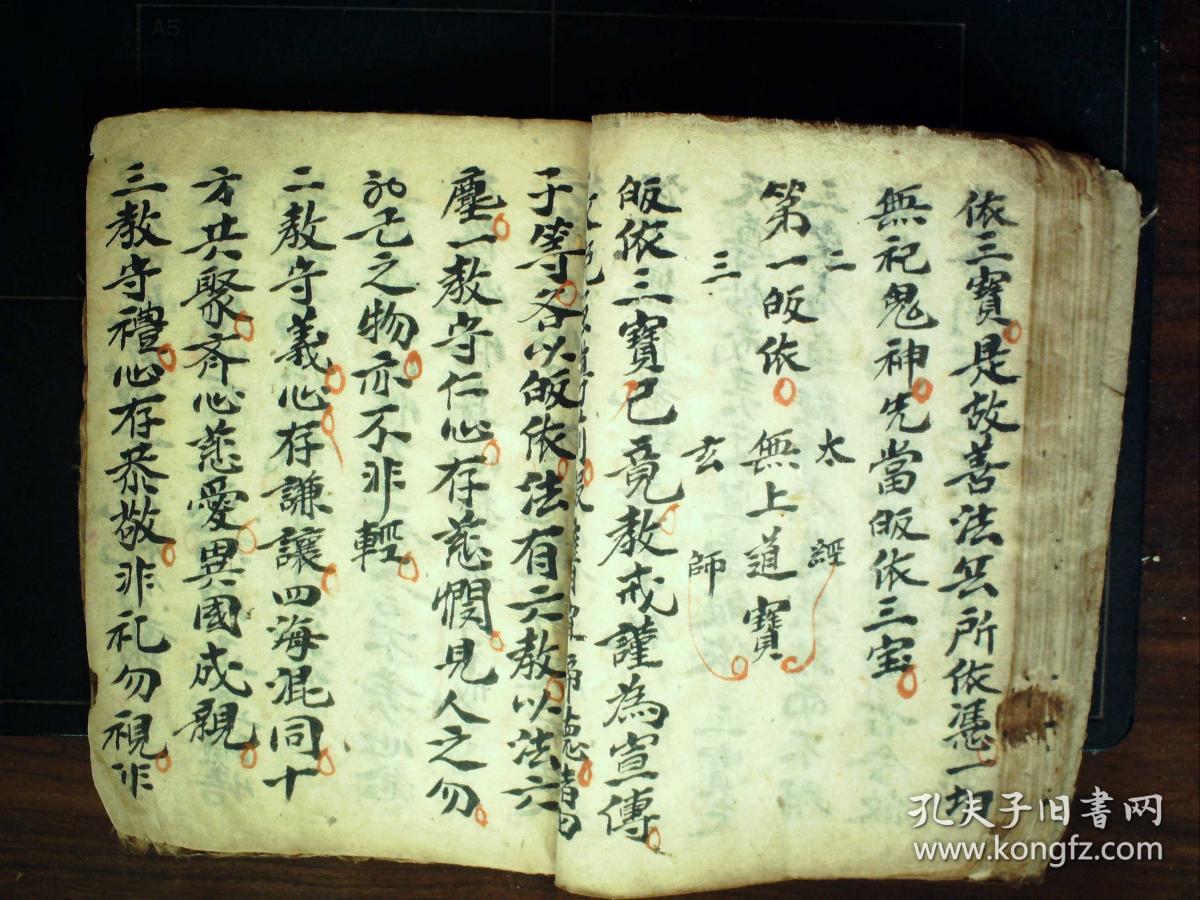 依三寳是故善法無所依憑一切
無祀鬼神先當皈依三宝
二 太 經
第一皈依 無上道寳
三 玄 師
皈依三寳已竟教戒謹為宣傳
子等各以皈依法有六教以法六
塵一教守仁心存慈憫見人之勿
之物亦不非輕
二教守義心存謙讓四海混同十
方共聚齊心慈愛異國成親
三教守禮心存恭敬非礼勿視非
孔夫子旧书网
www.kongfz.com
A5